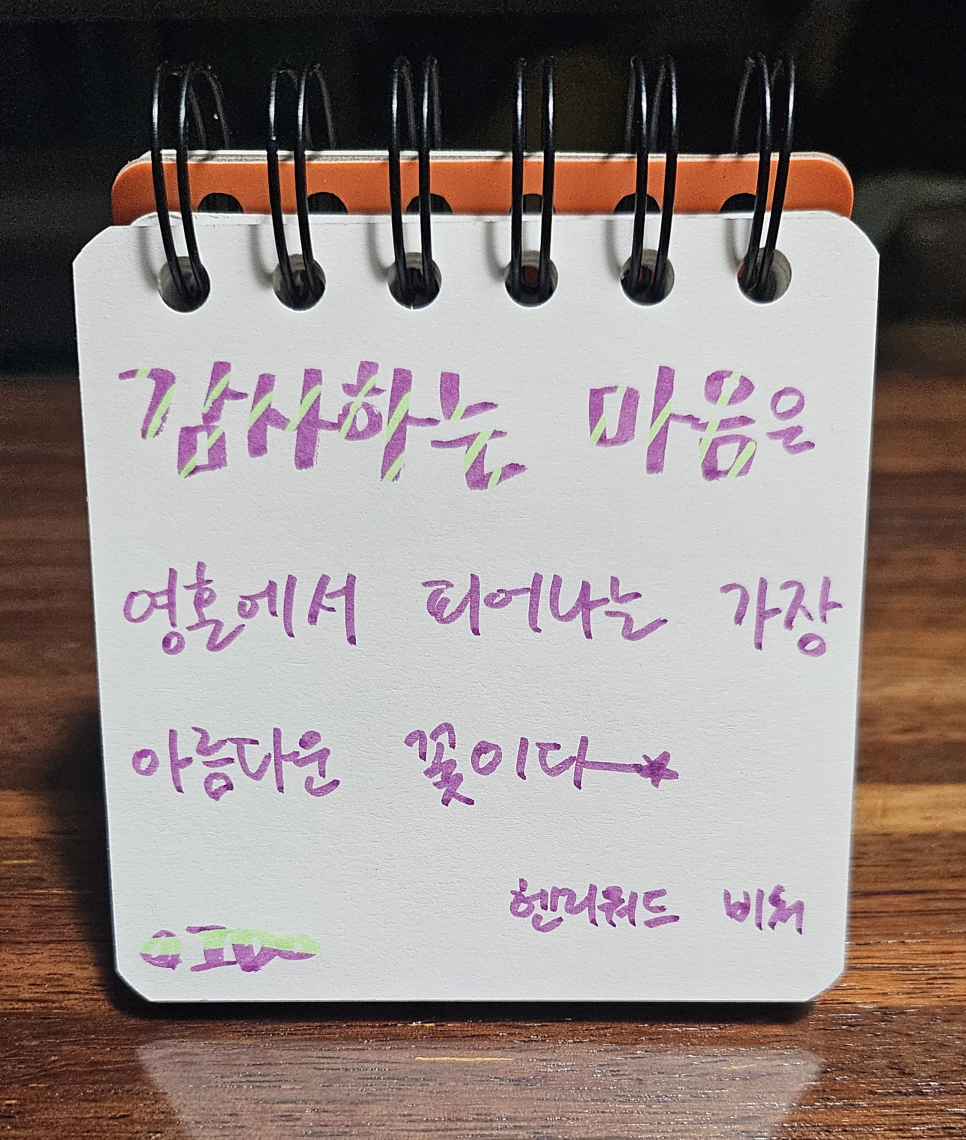 감사하는 마음은
영혼에서 피어나는 가장
아름다운 꽃이다
헨리워드 비처